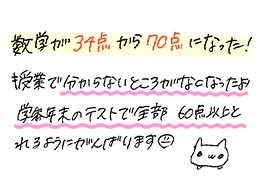 数学が34点から70点になった!
授業で分からないところがなくなったよ
学年末のテストで全部 60点以上と
れるようにがんばります